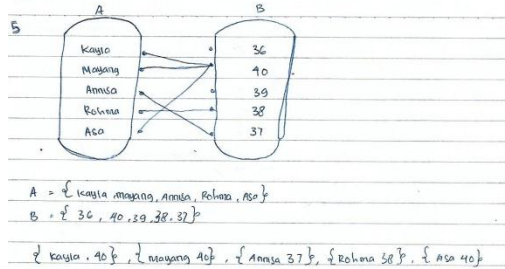 A B
5
Kayla 36
Mayang 40
Annisa 39
Rohma 38
Asa 37
A = { Kayla, mayang, Annisa, Rohma, Asa }
B = { 36, 40, 39, 38, 37 }
{ Kayla, 40 }, { mayang 40 }, { Annisa 37 }, { Rohma 38 }, { Asa 40 }